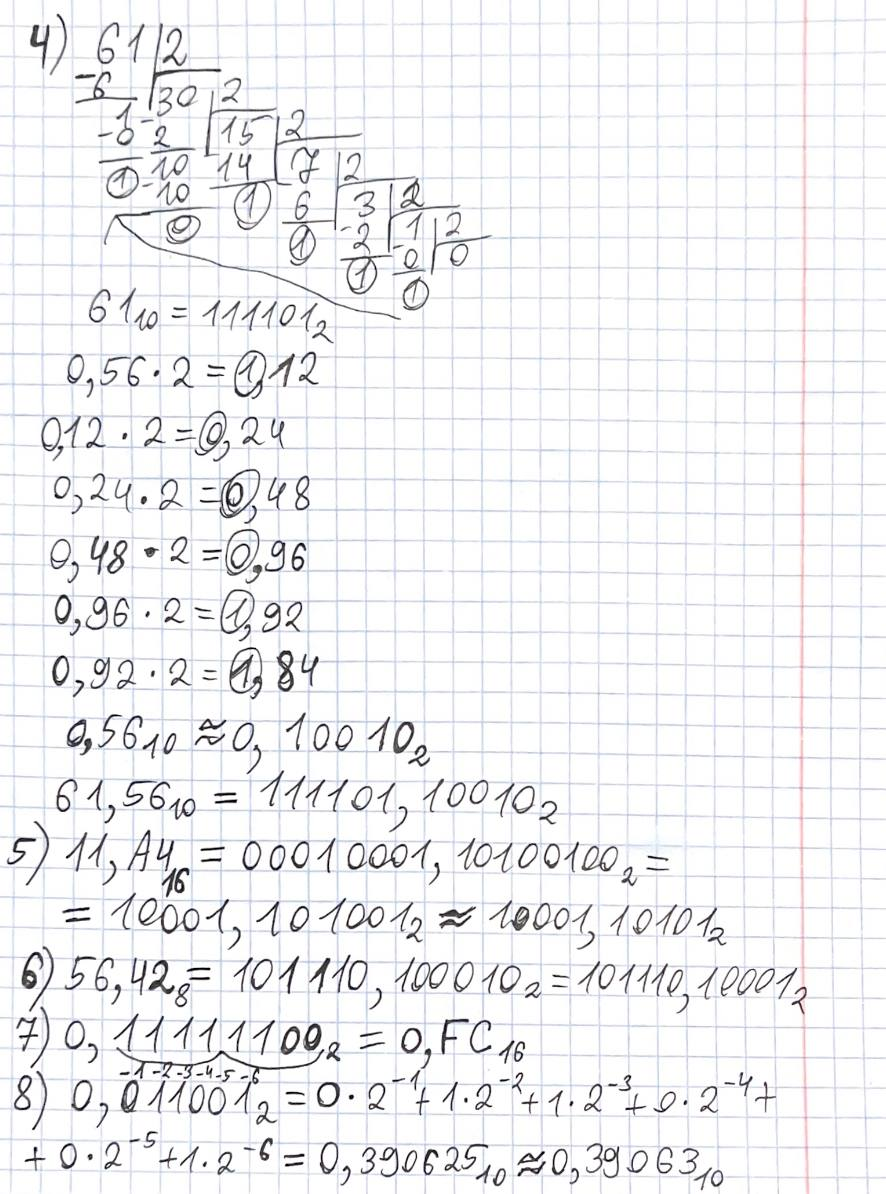 4) 61 | 2
-6 | 30 | 2
1 - | 15 | 2
-0 2 14 | 7 | 2
1 10 1 6 | 3 | 2
-10 1 -2 | 1 | 2
0 1 -0 | 0
1
61₁₀ = 111101₂
0,56 · 2 = 1,12
0,12 · 2 = 0,24
0,24 · 2 = 0,48
0,48 · 2 = 0,96
0,96 · 2 = 1,92
0,92 · 2 = 1,84
0,56₁₀ ≈ 0, 10010₂
61,56₁₀ = 111101,10010₂
5) 11,A4₁₆ = 00010001,10100100₂ =
= 10001,101001₂ ≈ 10001,10101₂
6) 56,42₈ = 101110,100010₂ = 101110,10001₂
7) 0,11111100₂ = 0,FC₁₆
-1 -2 -3 -4 -5 -6
8) 0,011001₂ = 0·2⁻¹ + 1·2⁻² + 1·2⁻³ + 0·2⁻⁴ +
+ 0·2⁻⁵ + 1·2⁻⁶ = 0,390625₁₀ ≈ 0,39063₁₀